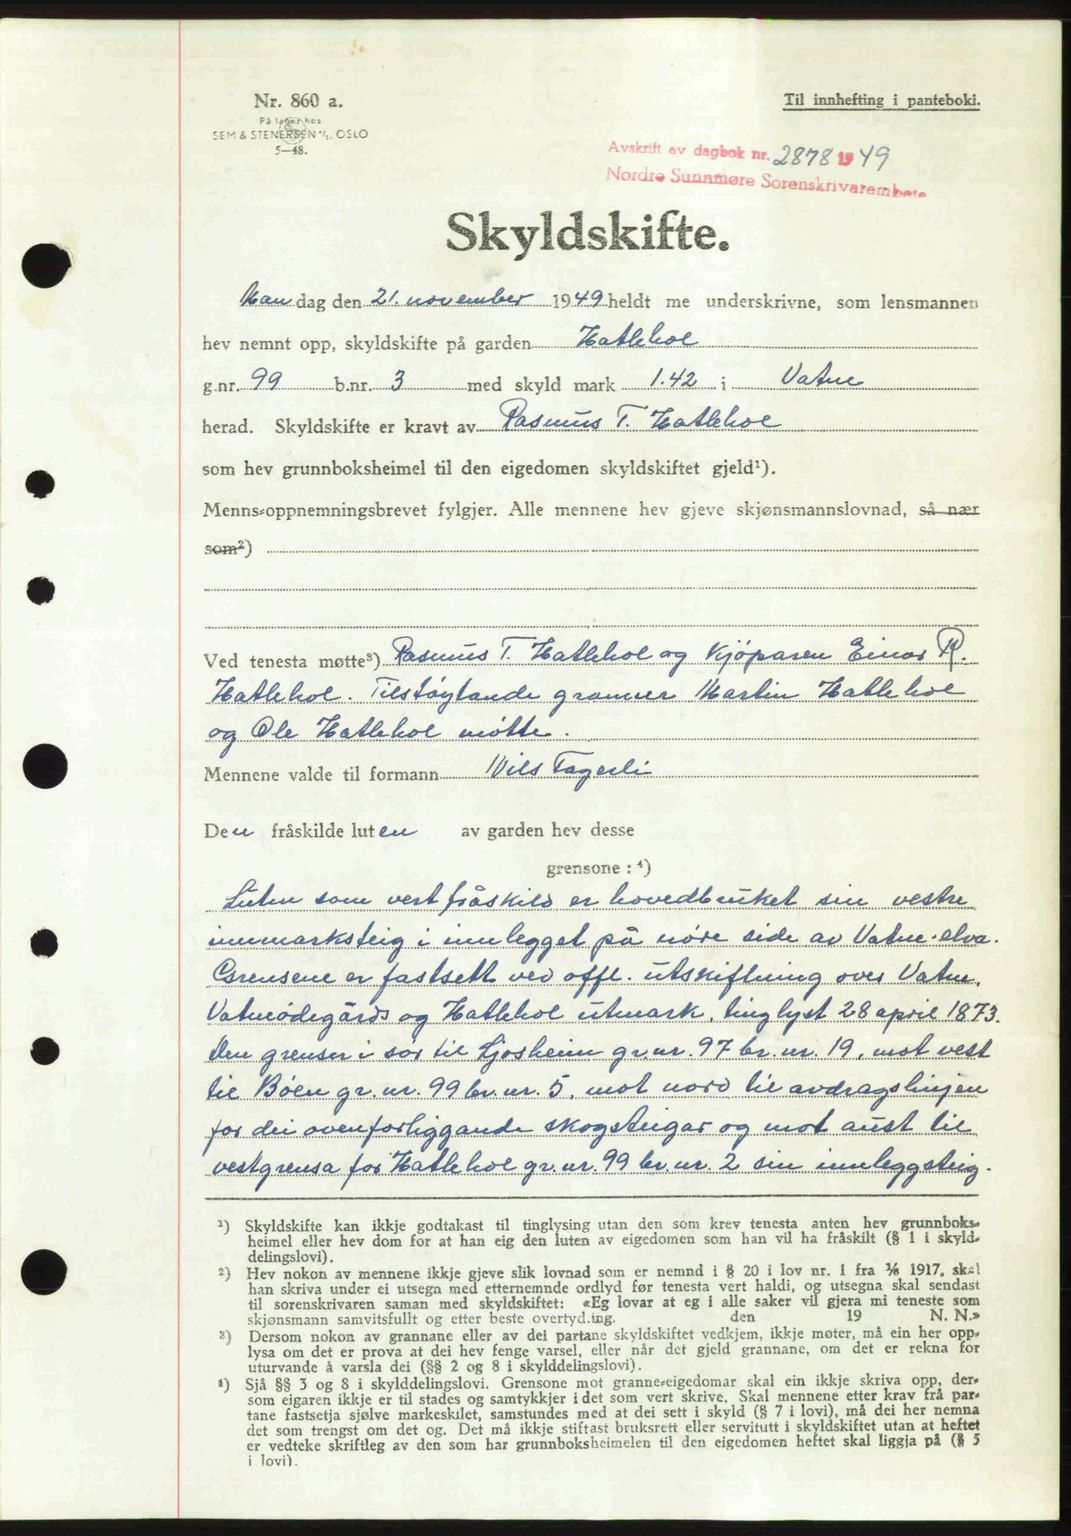 Nr. 860 a.
På lager hos
SEM & STENERSEN A/S. OSLO
5—48.
Til innhefting i panteboki.
Avskrift av dagbok nr. 2878 1949
Nordre Sunnmøre Sorenskrivarembete
Skyldskifte.
Mandag den 21. november 1949 heldt me underskrivne, som lensmannen
hev nemnt opp, skyldskifte på garden Hatlehol
g.nr. 99 b.nr. 3 med skyld mark 1.42 i Vatne
herad. Skyldskifte er kravt av Rasmus T. Hatlehol
som hev grunnboksheimel til den eigedomen skyldskiftet gjeld¹).
Menns-oppnemningsbrevet fylgjer. Alle mennene hev gjeve skjønsmannslovnad, så nær
som²)
Ved tenesta møtte³) Rasmus T. Hatlehol og kjöparen Einar R.
Hatlehol. Tilstøytande grannar Martin Hatlehol
og Ole Hatlehol møtte.
Mennene valde til formann Nils Fagerli
Den fråskilde luten av garden hev desse
grensone : ⁴)
Luten som vert fråskild er hovedbruket sin vestre
innmarksteig i innlegget på nøre side av Vatne-elva.
Grensene er fastsett ved offl. utskiftning over Vatne,
Vatneödegårds og Hatlehol utmark, tinglyst 28 april 1873.
Den grenser i sør til Ljosheim gr.nr. 97 br.nr. 19, mot vest
til Bøen gr.nr. 99 br.nr. 5, mot nord til avdragslinjen
for dei ovenforliggande skogsteigar og mot aust til
vestgrensa for Hatlehol gr.nr. 99 br.nr. 2 sin innleggsteig.
¹) Skyldskifte kan ikkje godtakast til tinglysing utan den som krev tenesta anten hev grunnboks-
heimel eller hev dom for at han eig den luten av eigedomen som han vil ha fråskilt (§ 1 i skyld-
delingslovi).
²) Hev nokon av mennene ikkje gjeve slik lovnad som er nemnd i § 20 i lov nr. 1 fra 1/6 1917, skal
han skriva under ei utsegn med etternemnde ordlyd før tenesta vert haldi, og utsegna skal sendast
til sorenskrivaren saman med skyldskiftet: «Eg lovar at eg i alle saker vil gjera mi teneste som
skjønsmann samvitsfullt og etter beste overtyding. den 19 N. N.»
³) Dersom nokon av grannane eller av dei partane skyldskiftet vedkjem, ikkje møter, må ein her opp-
lysa om det er prova at dei hev fenge varsel, eller når det gjeld grannane, om det er rekna for
uturvande å varsla dei (§§ 2 og 8 i skylddelingslovi).
⁴) Sjå §§ 3 og 8 i skylddelingslovi. Grensone mot granne-eigedomar skal ein ikkje skriva opp, der-
som eigaren ikkje er til stades og samtykkjer i det som vert skrive. Skal mennene etter krav frå par-
tane fastsetja sjølve markeskilet, samstundes med at dei sett i skyld (§ 7 i lovi), må dei her nemna
det som trengst om det og. Det må ikkje stiftast bruksrett eller servitutt i skyldskiftet utan at heftet
er vedteke skriftleg av den som har grunnboksheimelen til den eigedomen heftet skal liggja på (§ 5
i lovi).